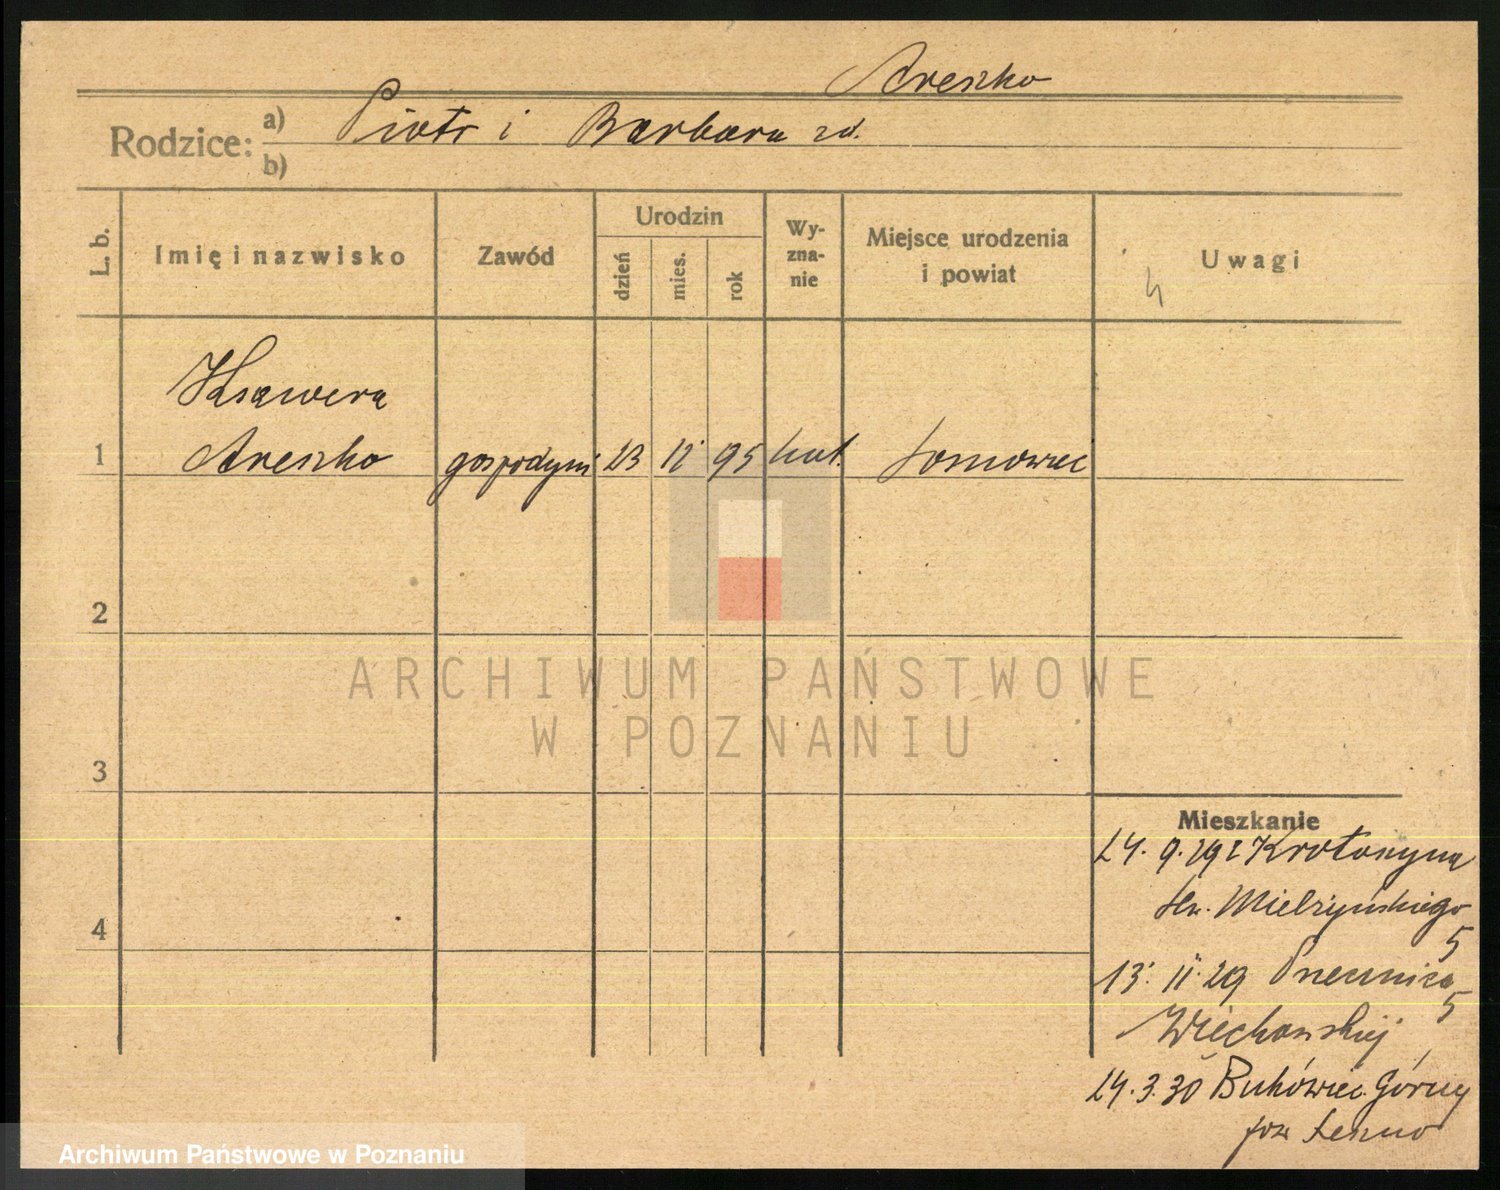 Areszko
Rodzice: a) Piotr i Barbara zd.
b)
L. b.
Imię i nazwisko
Zawód
Urodzin
dzień
mies.
rok
Wy-
zna-
nie
Miejsce urodzenia
i powiat
Uwagi
Ksawera
1 Areszko gospodyni 23 12 95 kat.
2
3
4
Mieszkanie
24. 9. 292 Krotoszyna
Mielżyńskiego
5
13. II. 29
5
24. 3. 30 Bukówiec Górny
pow Leszno
ARCHIWUM PAŃSTWOWE
W POZNANIU
Archiwum Państwowe w Poznaniu